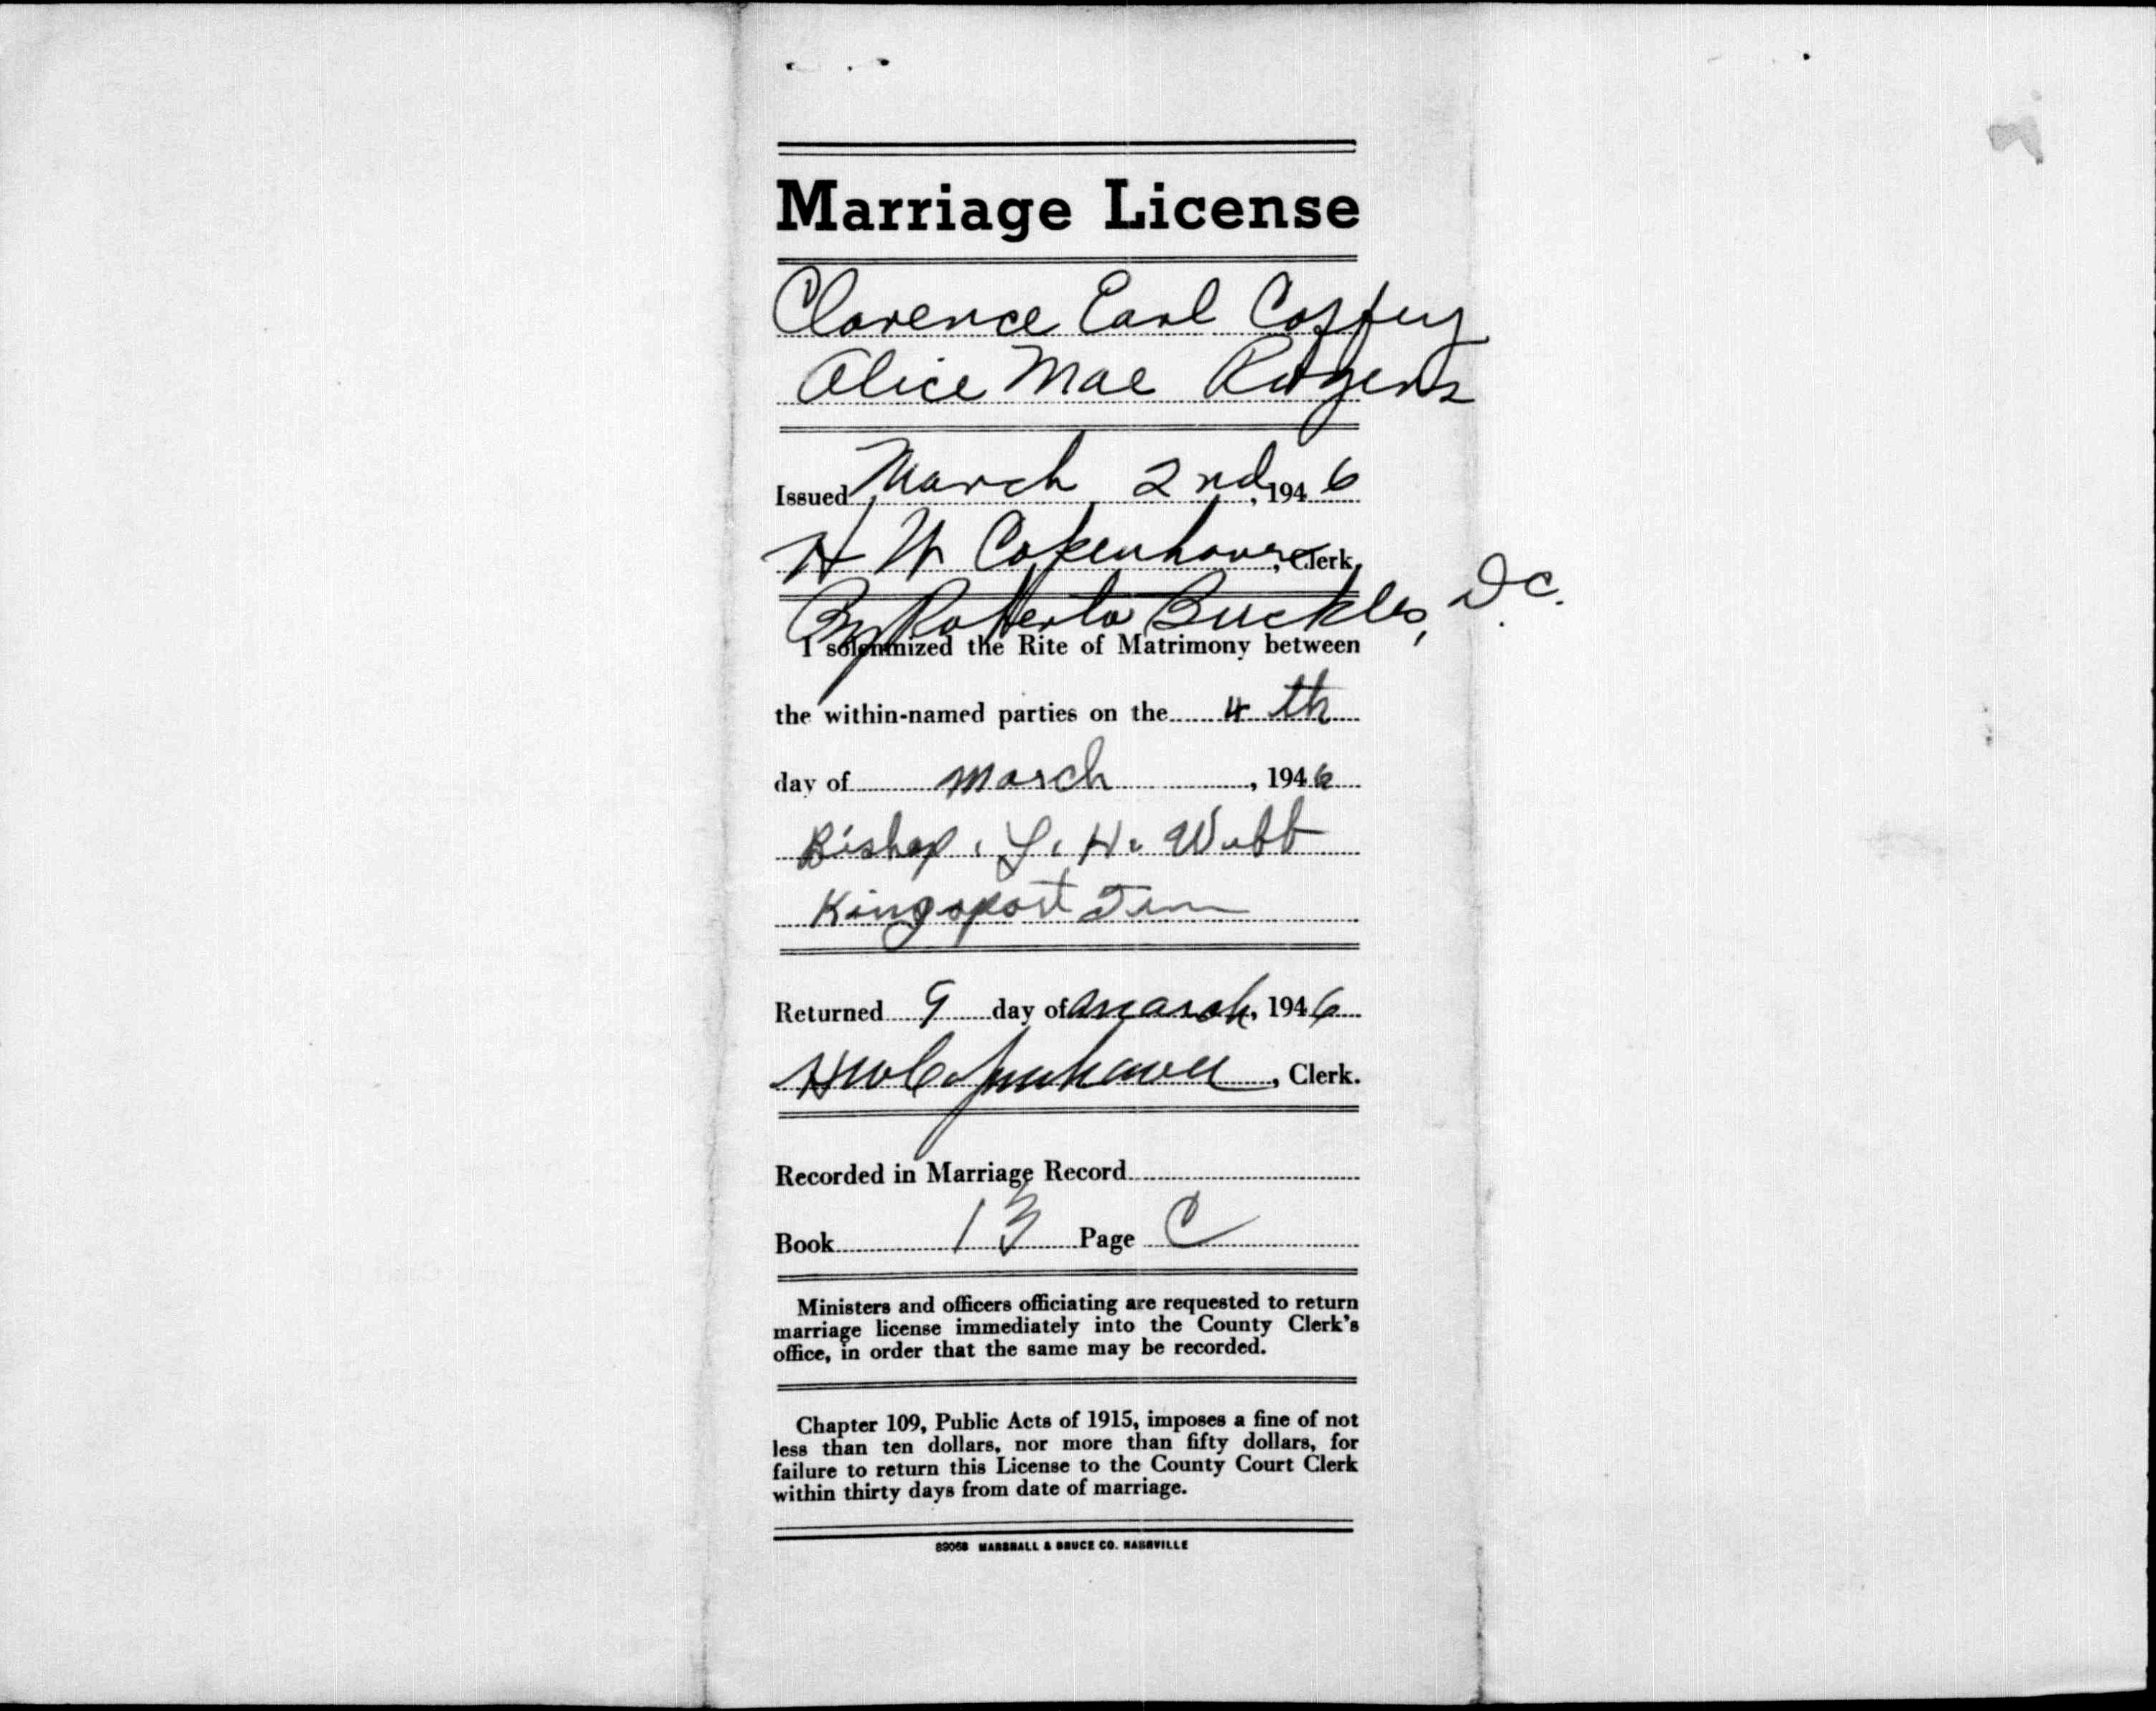 Marriage License
Clarence Earl Coffey
Alice Mae Rutgers
Issued March 2nd, 1946
H W Copenhaver, Clerk.
By Roberta Buckles, D.C.
I solemnized the Rite of Matrimony between
the within-named parties on the 4 th
day of March, 1946
Bishop. L. H. Webb
Kingsport Tenn
Returned 9 day of March, 1946
H W Copenhaver, Clerk.
Recorded in Marriage Record
Book 13 Page C
Ministers and officers officiating are requested to return
marriage license immediately into the County Clerk's
office, in order that the same may be recorded.
Chapter 109, Public Acts of 1915, imposes a fine of not
less than ten dollars, nor more than fifty dollars, for
failure to return this License to the County Court Clerk
within thirty days from date of marriage.
89068 MARSHALL & BRUCE CO. NASHVILLE